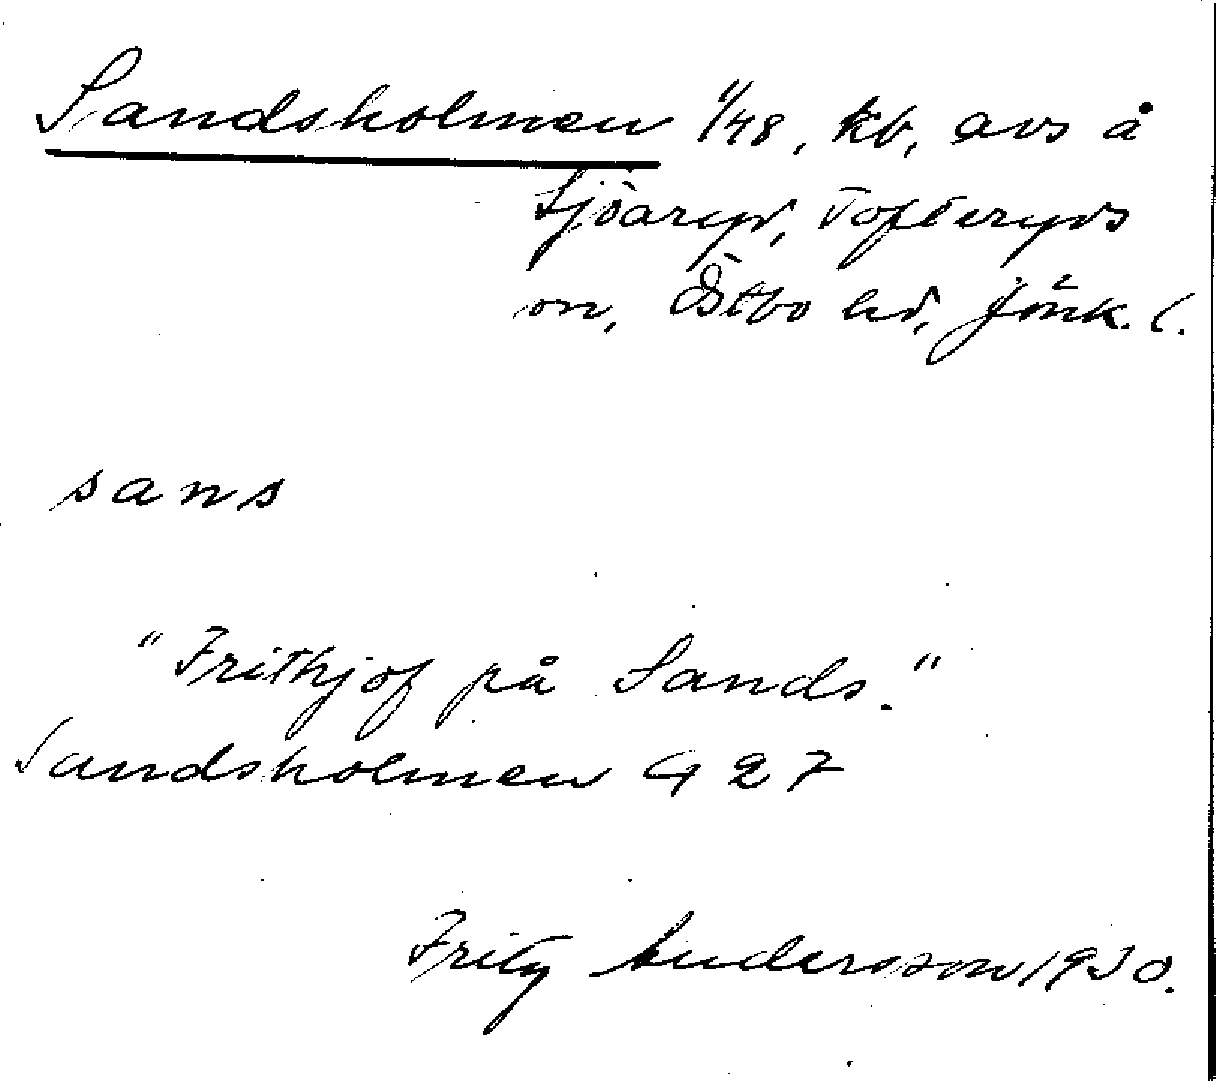 Sandsholmen 1/48, kb, avs å
Sjöaryd, Tofteryds
sn, Östbo hd, Jönk. l.
sans
"Frithjof på Sands."
Sandsholmen G 27
Fritz Andersson 1930.